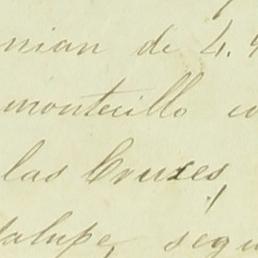 nian de 4.
montecillo
las Cruces,
dalupe, segu